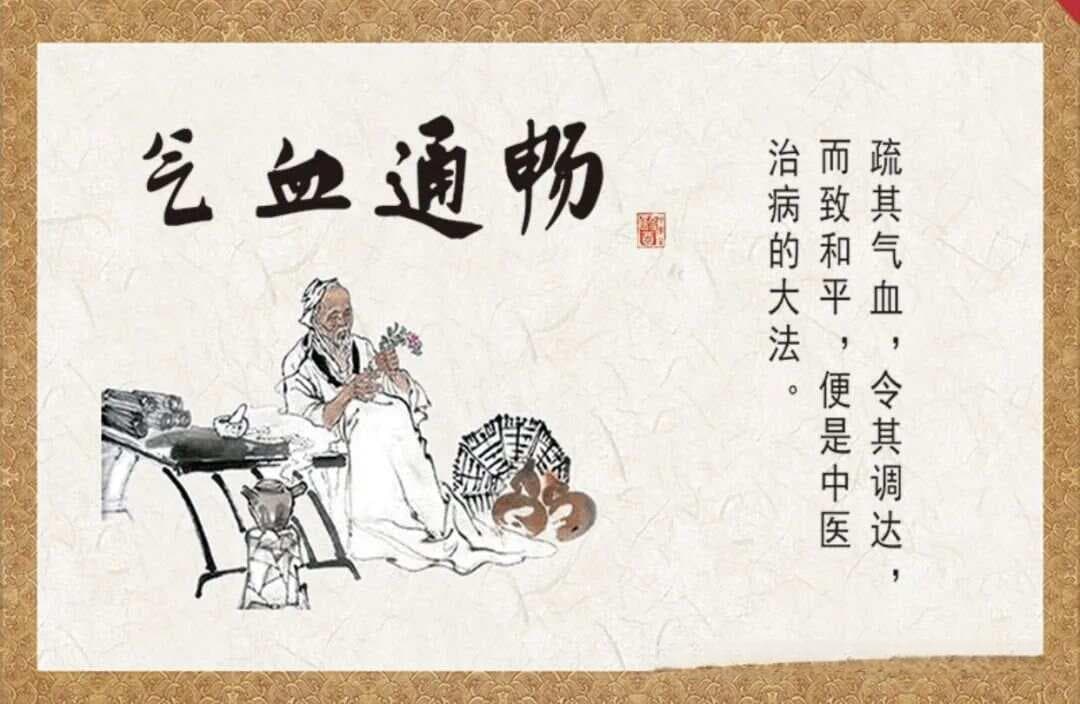 气血通畅
疏其气血，令其调达，
而致和平，便是中医
治病的大法。